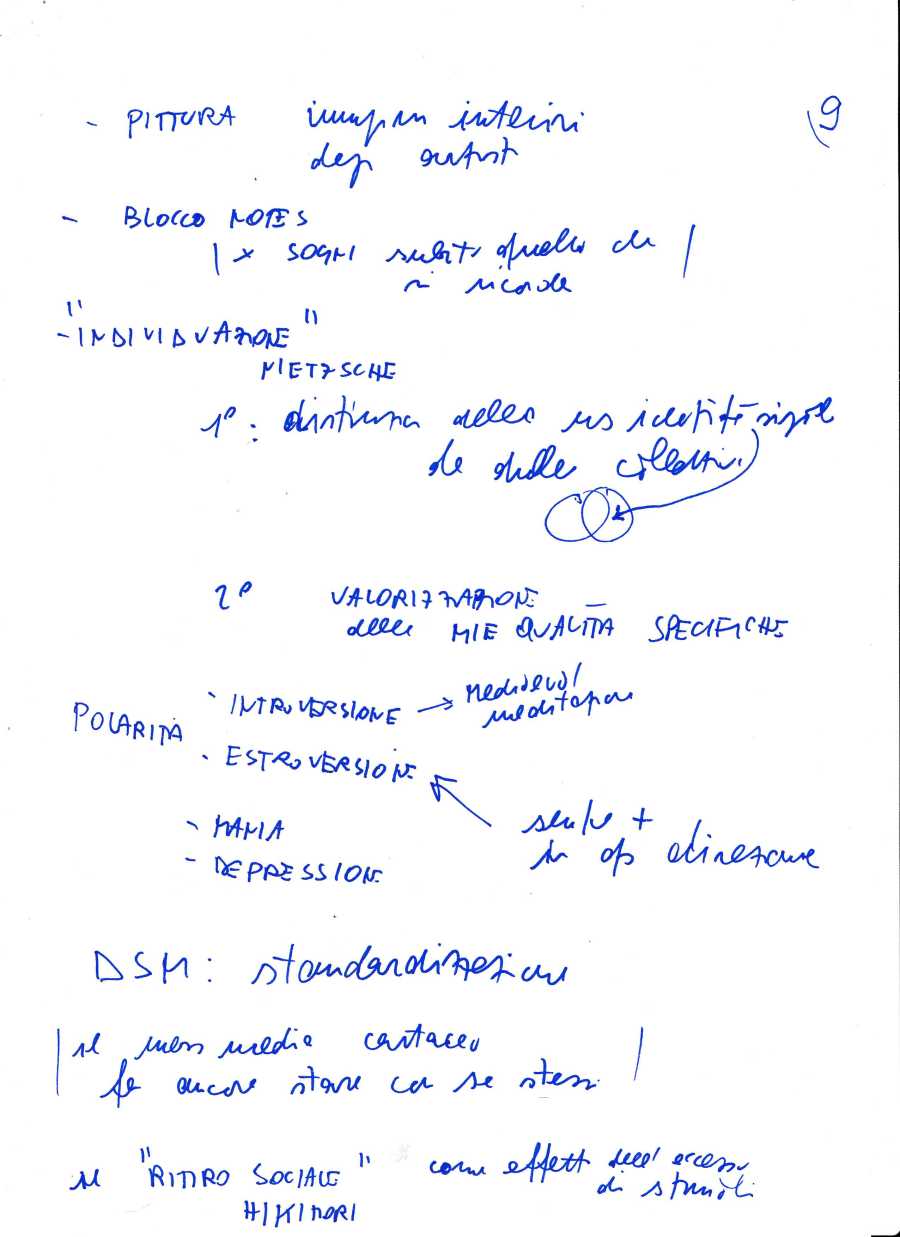 9
- PITTURA immagini interiori
degli artisti
- BLOCCO NOTES
| x SOGNI subito quello che |
si ricorda
- "INDIVIDUAZIONE"
NIETZSCHE
1°: distinzione della ns identità
da quella collettiva
2° VALORIZZAZIONE
delle MIE QUALITÀ SPECIFICHE
POLARITÀ
- INTROVERSIONE → Medioevo /
meditazione
- ESTROVERSIONE
sempre +
in direzione
- MANIA
- DEPRESSIONE
DSM: standardizzazione
| il mass media cartaceo |
fa ancora stare con se stessi
il "RITIRO SOCIALE" come effetto dell'eccesso
di stimoli
HIKIMORI